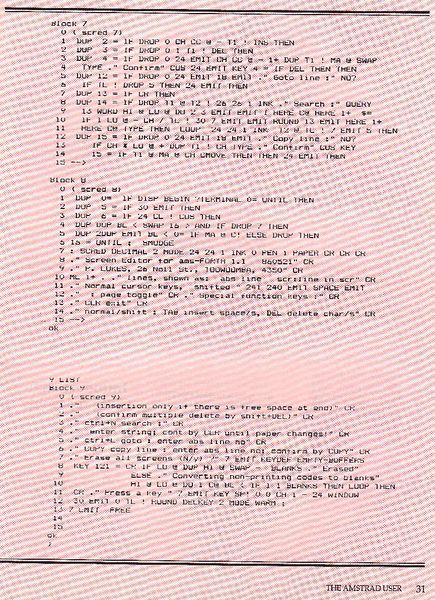 Block 7
0 ( scred 7)
1 DUP 2 = IF DROP 0 CH CC @ - T1 ! INS THEN
2 DUP 3 = IF DROP 0 1 T1 ! DEL THEN
3 DUP 4 = IF DROP 0 24 EMIT CH CC @ - 1+ DUP T1 ! MA @ SWAP
4 TYPE ." Confirm" CUS 24 EMIT KEY 4 = IF DEL THEN THEN
5 DUP 12 = IF DROP 0 24 EMIT 18 EMIT ." Goto line :" NO?
6 IF TL ! DROP 5 THEN 24 EMIT THEN
7 DUP 13 = IF CR THEN
8 DUP 14 = IF DROP T1 @ T2 ! 26 26 1 INK ." Search :" QUERY
9 13 WORD HI @ LO @ DO 2 3 EMIT EMIT I HERE C@ HERE 1+ $=
10 IF I LO @ - CH / TL ! 30 7 EMIT EMIT ROUND 13 EMIT HERE 1+
11 HERE C@ TYPE THEN LOOP 24 24 1 INK T2 @ TL ! 7 EMIT 5 THEN
12 DUP 15 = IF DROP 0 24 EMIT 18 EMIT ." Copy line :" NO?
13 IF CH * LO @ + DUP T1 ! CH TYPE ." Confirm" CUS KEY
14 15 = IF T1 @ MA @ CH CMOVE THEN THEN 24 EMIT THEN
15 -->
Block 8
0 ( scred 8)
1 DUP 0= IF DISP BEGIN ?TERMINAL 0= UNTIL THEN
2 DUP 5 = IF 30 EMIT THEN
3 DUP 6 = IF 24 CL ! CUS THEN
4 DUP DUP BL < SWAP 16 > AND IF DROP 7 THEN
5 DUP 2DUP EMIT BL < 0= IF MA @ C! ELSE DROP THEN
6 16 = UNTIL ; SMUDGE
7 : SCRED DECIMAL 2 MODE 24 24 1 INK 0 PEN 1 PAPER CR CR CR
8 ." Screen Editor for ams-FORTH 1.1 860521" CR
9 ." P. LUKES, 26 Noll St., TOOWOOMBA, 4350" CR
10 ML 1+ . ." lines, shown as: abs line scr:line in scr" CR
11 ." Normal cursor keys, shifted " 241 240 EMIT SPACE EMIT
12 ." : page toggle" CR ." Special function keys :" CR
13 ." CLR exit" CR
14 ." normal/shift : TAB insert space/s, DEL delete char/s" CR
15 -->
ok
9 LIST
Block 9
0 ( scred 9)
1 ." (insertion only if there is free space at end)" CR
2 ." (confirm multiple delete by shift+DEL)" CR
3 ." ctrl+N search :" CR
4 ." enter string; cont by CLR until paper changes!" CR
5 ." ctrl+L goto : enter abs line no" CR
6 ." COPY copy line : enter abs line no; confirm by COPY" CR
7 ." Erase all screens (N/y) ?" 7 EMIT KEYDEF EMPTY-BUFFERS
8 KEY 121 = CR IF LO @ DUP HI @ SWAP - BLANKS ." Erased"
9 ELSE ." Converting non-printing codes to blanks"
10 HI @ LO @ DO I C@ BL < IF I 1 BLANKS THEN LOOP THEN
11 CR ." Press a key " 7 EMIT KEY SP! 0 0 CH 1 - 24 WINDOW
12 30 EMIT 0 TL ! ROUND DELKEY 2 MODE WARM ;
13 7 EMIT FREE
14
15
ok
;
THE AMSTRAD USER 31